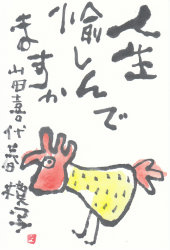 人生
愉しんで
ますか
山田喜代春